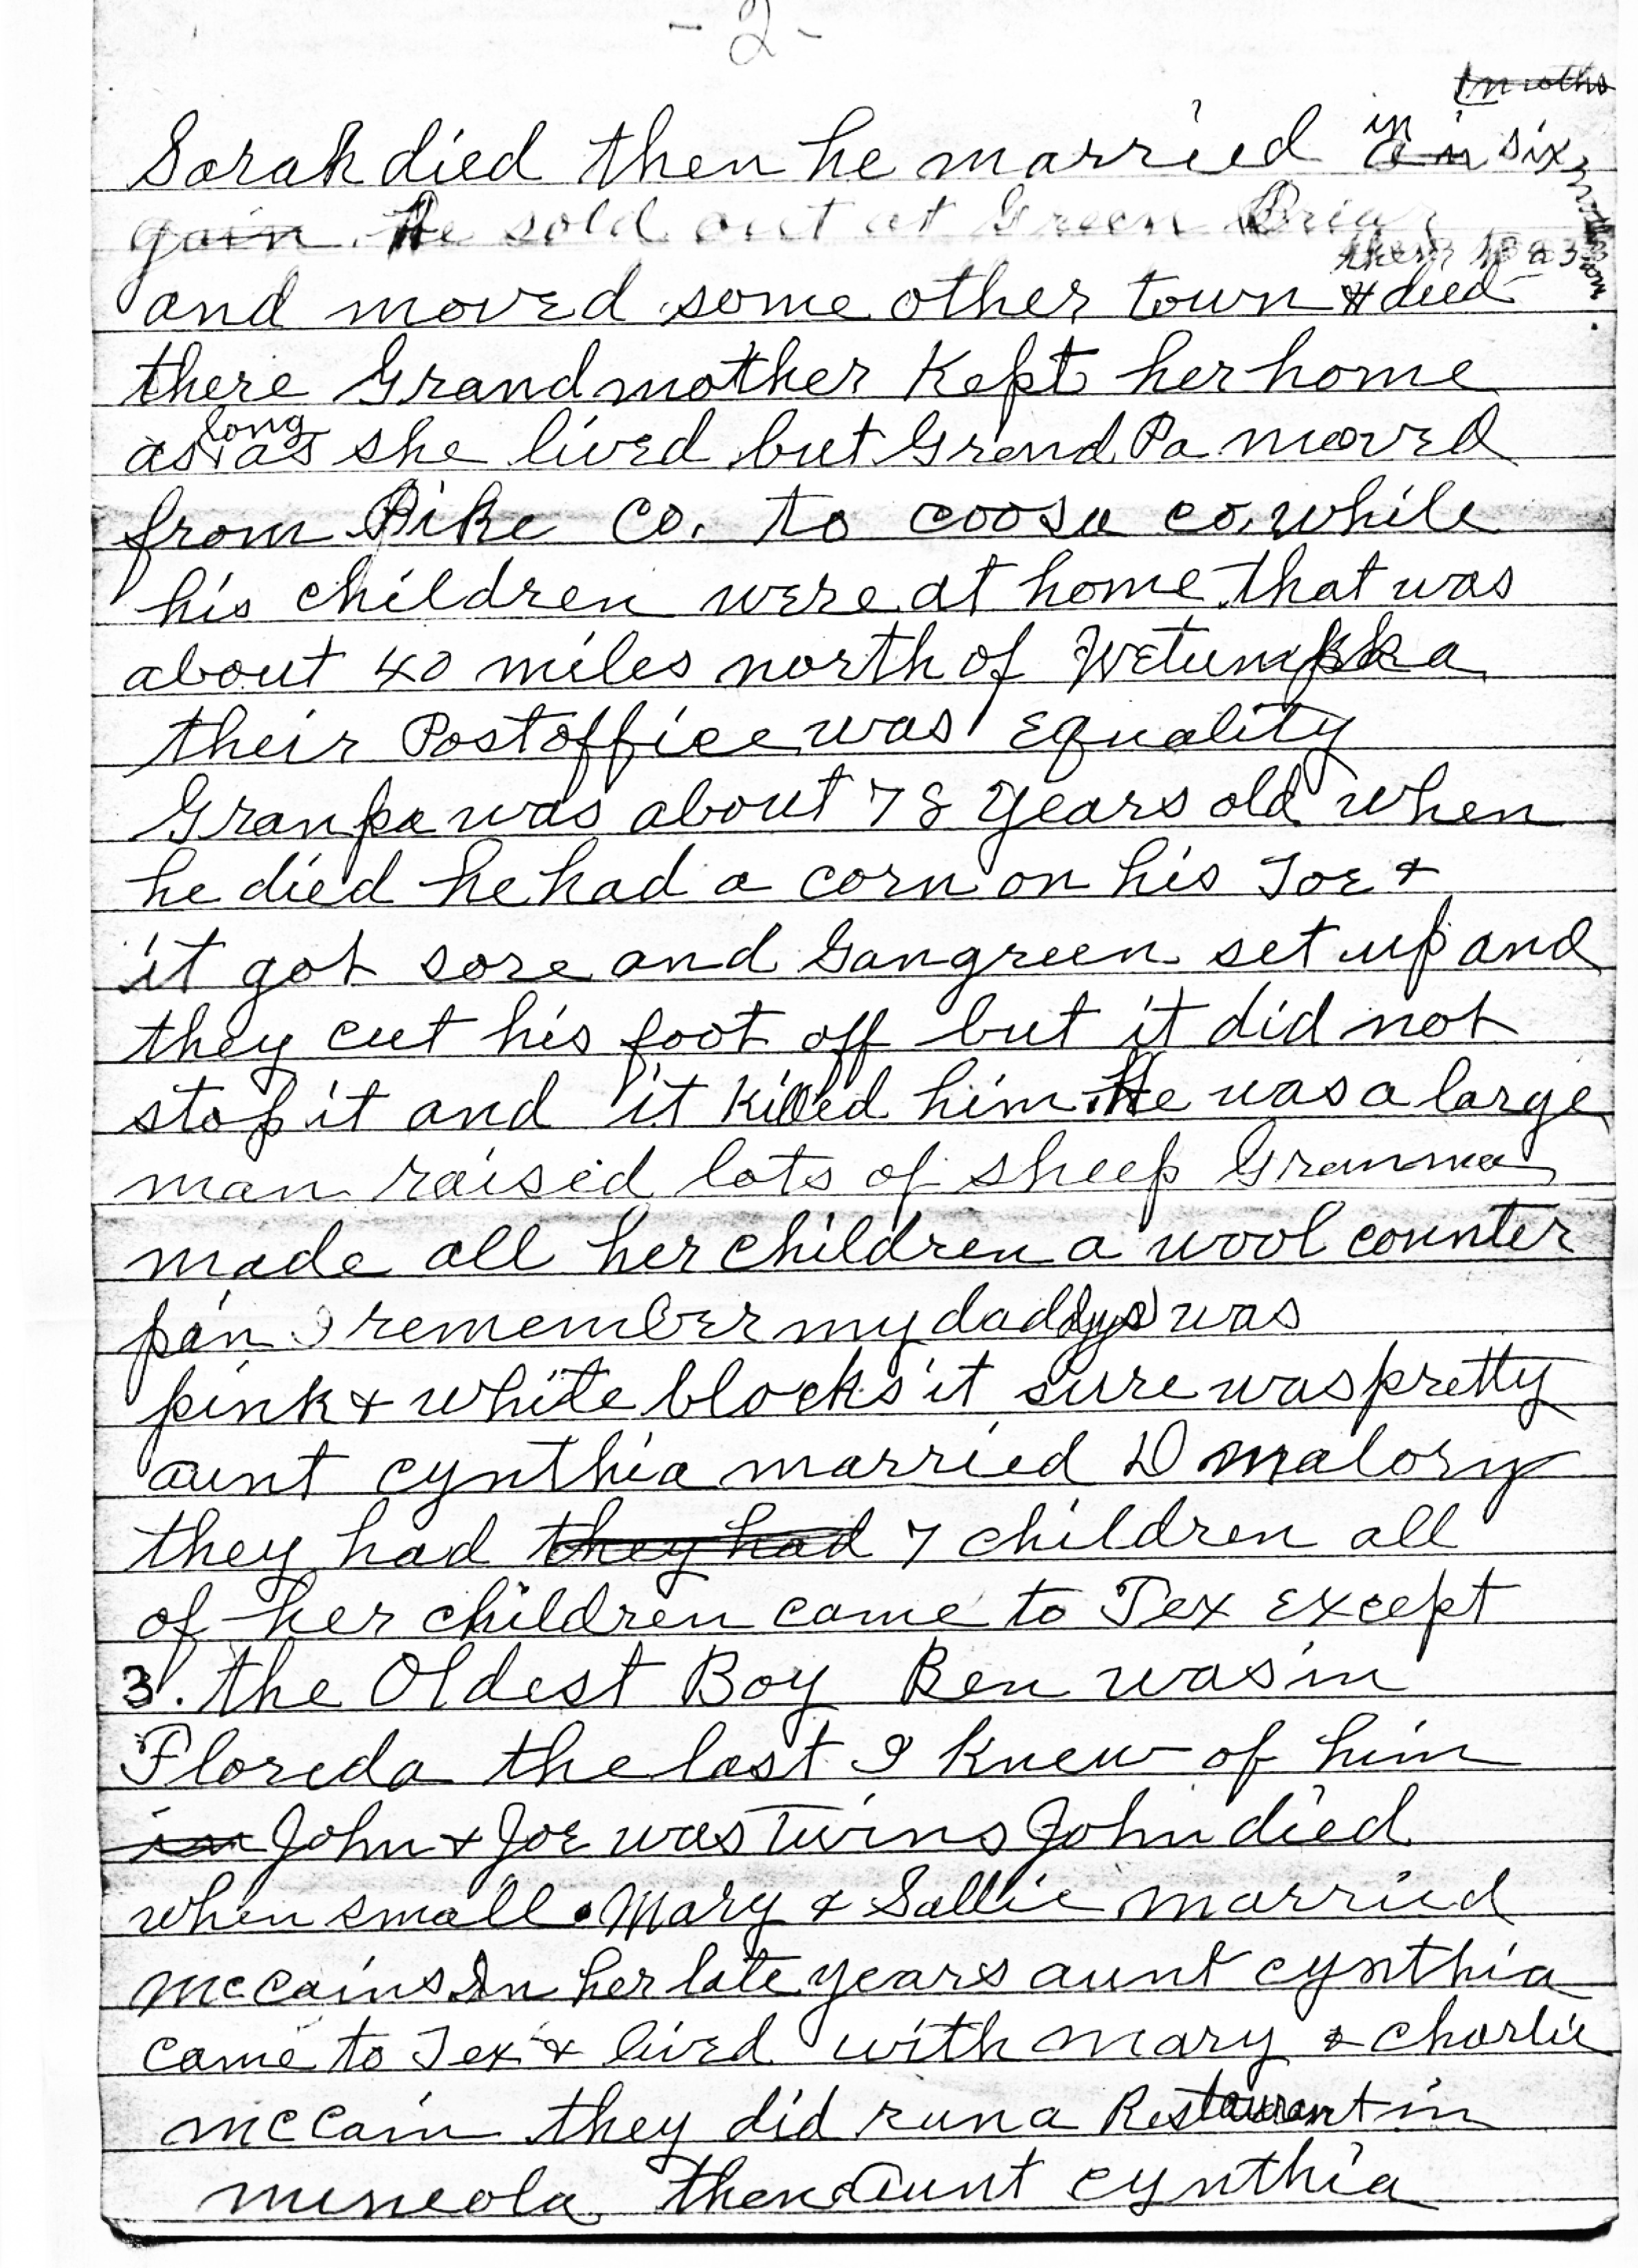 - 2 -
months
Sarah died then he married in six months.
gain. He sold out at Green Briar
and moved some other town & died
there Grandmother Kept her home
as long as she lived but Grand Pa moved
from Pike Co. to coosa co. while
his children were at home that was
about 40 miles north of Wetumpka
their Postoffice was Equality
Granpa was about 78 years old when
he died he had a corn on his Toe &
it got sore and Gangreen set up and
they cut his foot off but it did not
stop it and it killed him. He was a large
man raised lots of sheep Granma
made all her children a wool counter
pan I remember my daddys was
pink & white blocks it sure was pretty
aunt cynthia married D malory
they had they had 7 children all
of her children came to Tex Except
3. the Oldest Boy Ben was in
Floreda the last I knew of him
in John & Joe was Twins John died
when small. Mary & Sallie married
mccains In her late years aunt cynthia
came to Tex & lived with mary & charlie
mccain they did run a Restaurant in
mineola then Aunt cynthia